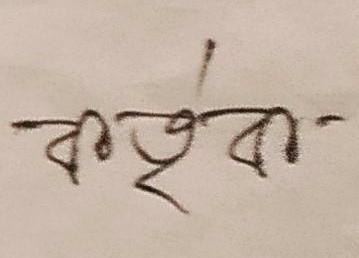 কর্তৃক